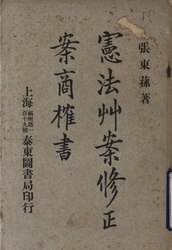 張東蓀著
憲法艸案修正
案商榷書
上海福州路一百十九號泰東圖書局印行